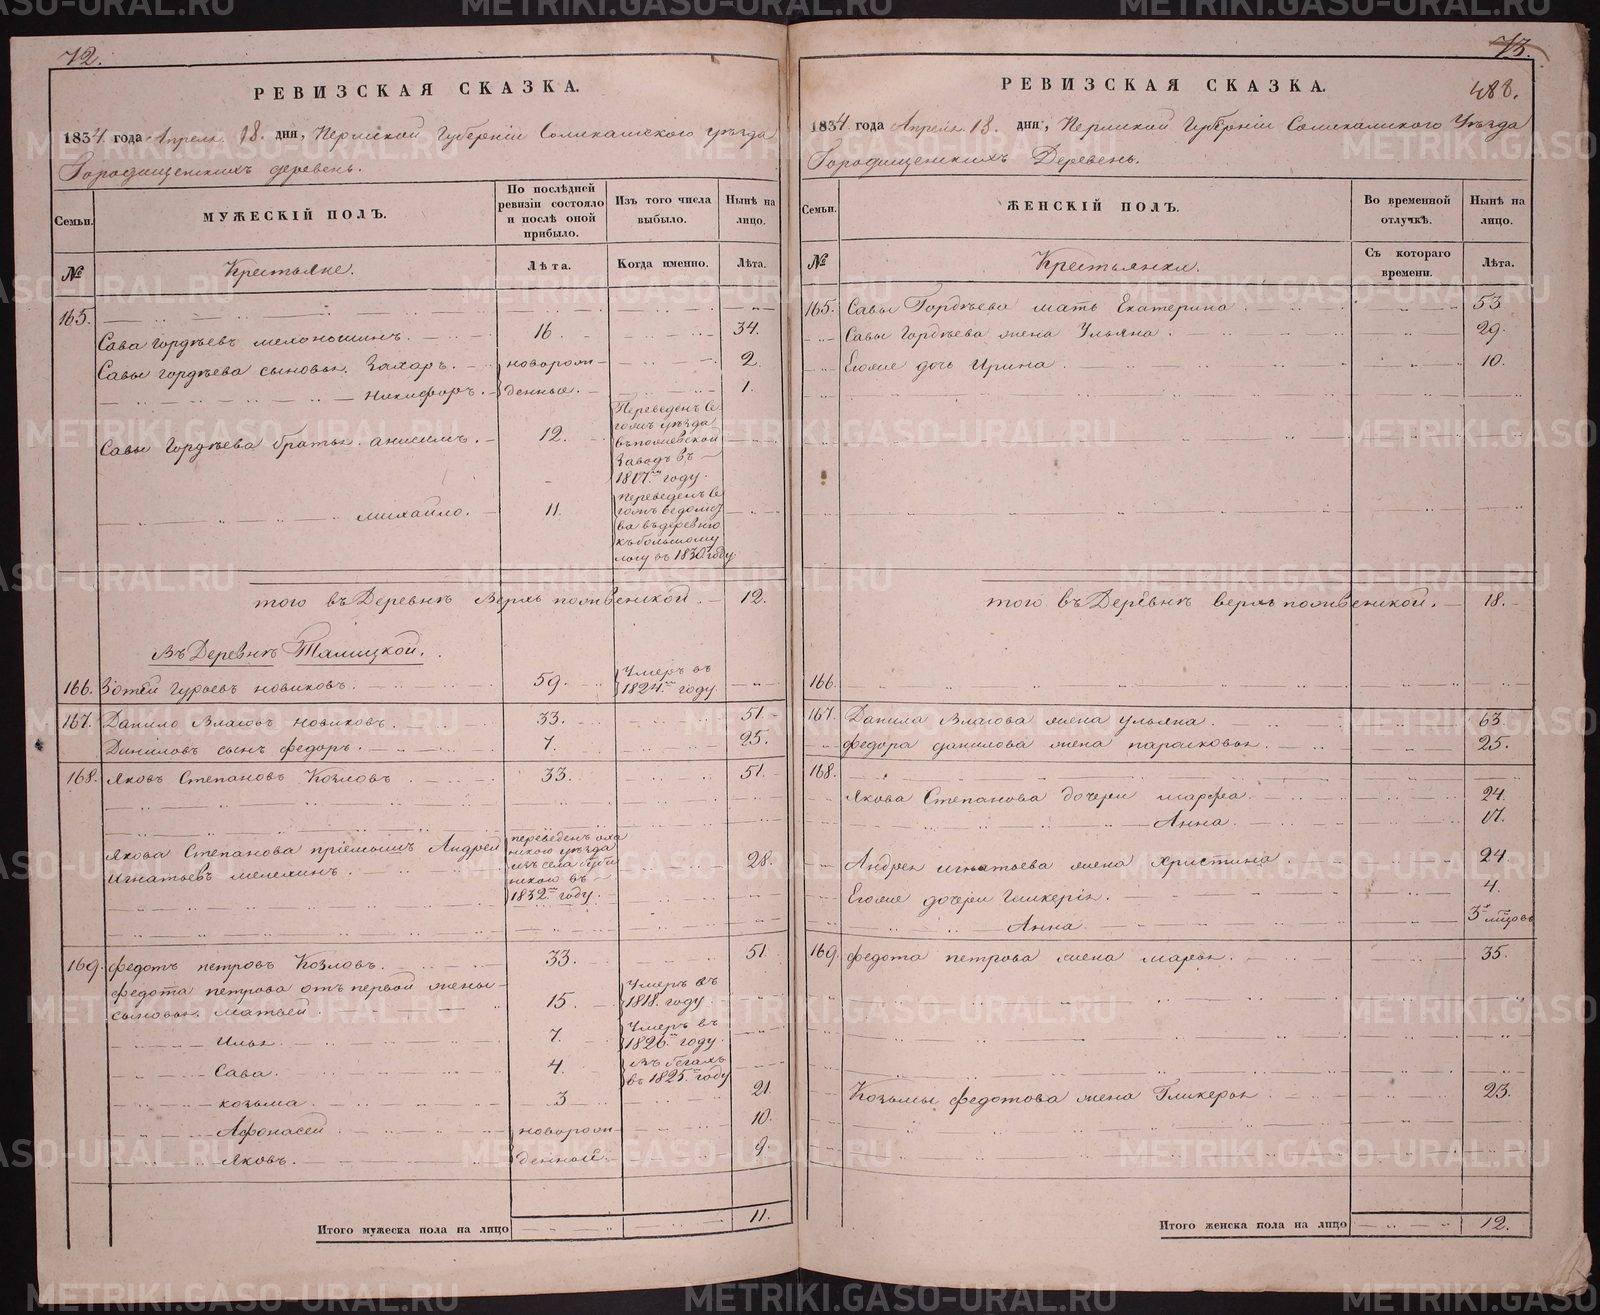 72.
РЕВИЗСКАЯ СКАЗКА.
1834 года Апреля 18. дня, Пермской Губерніи Соликамского уезда
Городищенскихъ деревень.
Семьи.
МУЖЕСКІЙ ПОЛЪ.
По послѣдней ревизіи состояло и послѣ оной прибыло.
Изъ того числа выбыло.
Нынѣ на лицо.
№
Крестьяне.
Лѣта.
Когда именно.
Лѣта.
165.
Сава Гордѣевъ 16. 34.
Савы Гордѣева сыновья. Захаръ. новорож- 2.
Никифоръ. денные. 1.
Савы Гордѣева братья. Анисимъ. 12. Переведенъ се
гожъ уѣзда
въ полевской
заводъ въ
1817мъ году.
михайло. 11. переведенъ се
гожъ ведомст
ва въ деревню
къ большому
логу въ 1830 году
того въ Деревне Верхъ 12.
Въ Деревне Талицкой.
166. Зотей Гурьевъ новиковъ. 59. Умеръ въ
1824мъ году.
167. Данило Власовъ новиковъ. 33. 51.
Даниловъ сынъ федоръ. 7. 25.
168. Яковъ Степановъ Козловъ 33. 51.
Якова Степанова пріемышъ Андрей переведенъ оха
нского уезда
изъ села
въ
1832мъ году.
Игнатьевъ мелехинъ. 28.
169. федотъ петровъ Козловъ. 33. 51
федота петрова отъ первой жены
сыновья. Матвей. 15. Умеръ въ
1818. году.
Илья. 7. Умеръ въ
1826мъ году.
Сава. 4. въ бегахъ
въ 1825мъ году
козьма. 3 21.
Афонасей новорож- 10.
Яковъ. денной. 9.
Итого мужеска пола на лицо 11.
73.
488.
РЕВИЗСКАЯ СКАЗКА.
1834 года Апреля 18. дня, Пермской Губерніи Соликамского Уезда
Городищенскихъ Деревень.
Семьи.
ЖЕНСКІЙ ПОЛЪ.
Во временной отлучкѣ.
Нынѣ на лицо.
№
Крестьянки.
Съ котораго времени.
Лѣта.
165. Савы Гордѣева мать Екатерина 53
Савы Гордѣева жена Ульяна. 29.
Егоже дочь Ирина 10.
того въ Деревне верхъ 18.
166.
167. Данила Власова жена ульяна. 63.
федора данилова жена парасковья. 25.
168.
Якова Степанова дочери марфа. 24.
Анна. 17.
Андрея игнатьева жена Христина 24.
Егоже дочери Гликерія. 4.
Анна. 3х мѣсяцовъ
169. федота петрова жена марья. 35.
Козьмы федотова жена Гликерья 23.
Итого женска пола на лицо 12.
METRIKI.GASO-URAL.RU